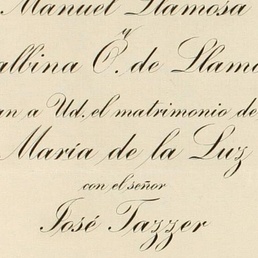 Manuel Llamosa
y
albina O. de Llamo
an a Ud. el matrimonio de
María de la Luz
con el señor
José Tazzer